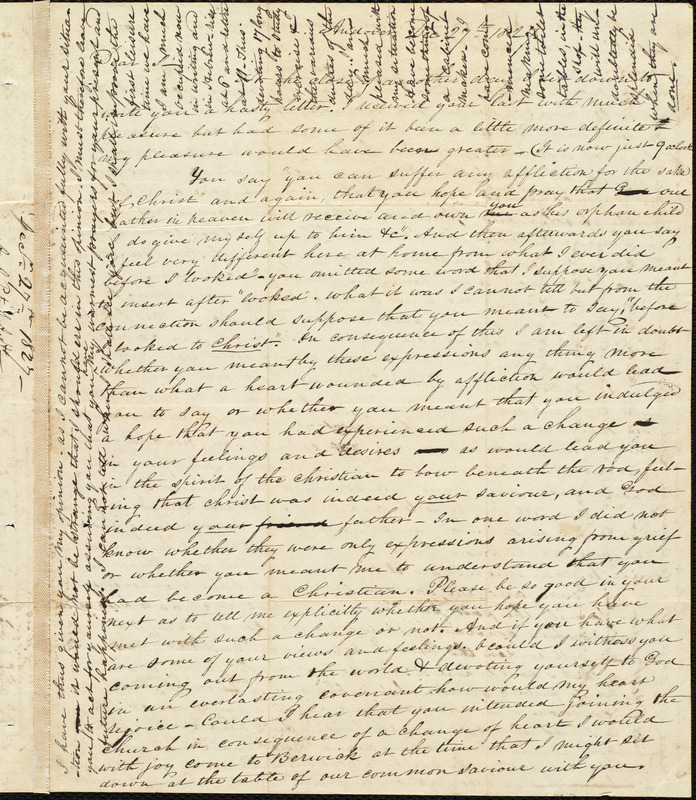 Andover Dec 29th 182
write you a hasty letter. I received your last with much
pleasure but had some of it been a little more definite
my pleasure would have been greater — (It is now just 9 oclock
You say "you can suffer any affliction for the sake
of Christ" and again, that you hope and pray that our
Father in heaven will receive and own you as his orphan child
do give myself up to him &c". And then afterwards you say
feel very different here at home from what I ever did
before I "looked" - you omitted some word that I suppose you meant
to insert after "looked". What it was I cannot tell but from the
connection should suppose that you meant to say, "before
I looked to Christ." In consequence of this I am left in doubt
whether you meant by these expressions any thing more
than what a heart wounded by affliction would lead
you to say or whether you meant that you indulged
a hope that you had experienced such a change
in your feelings and desires as would lead you
in the spirit of the christian to bow beneath the rod, feel-
ing that christ was indeed your saviour, and God
indeed your friend father - In one word I did not
know whether they were only expressions arising from grief
or whether you meant me to understand that you
had become a Christian. Please be so good in your
next as to tell me explicitly whether you hope you have
met with such a change or not. And if you have what
are some of your views and feelings. Could I witness you
coming out from the world & devoting yourself to God
in an everlasting covenant how would my heart
rejoice - Could I hear that you intended joining the
church in consequence of a change of heart I would
with joy come to Berwick at the time that I might sit
down at the table of our common saviour with you.
I have thus given you my opinion. as I cannot be acquainted fully with your situa-
tion it would not be strange that I should err in this opinion. I must therefore leave
you to act for yourself assuring you that you have my warmest prayers for your present and
future happiness.
first leisure
time we have
I am much
occupied now
in writing and
at 6 and retire
at 11. Thus
devoting 17 long
hours to study
exercise &
the various
duties of the
day. I am
pleased with
my situation
Have become
something of
a cabinet
maker.
have com-
menced
making
some toilet
tables, in the
shop they
will un-
doubtedly be
splendid
when they are
done.
Dec. 29th 1827 -